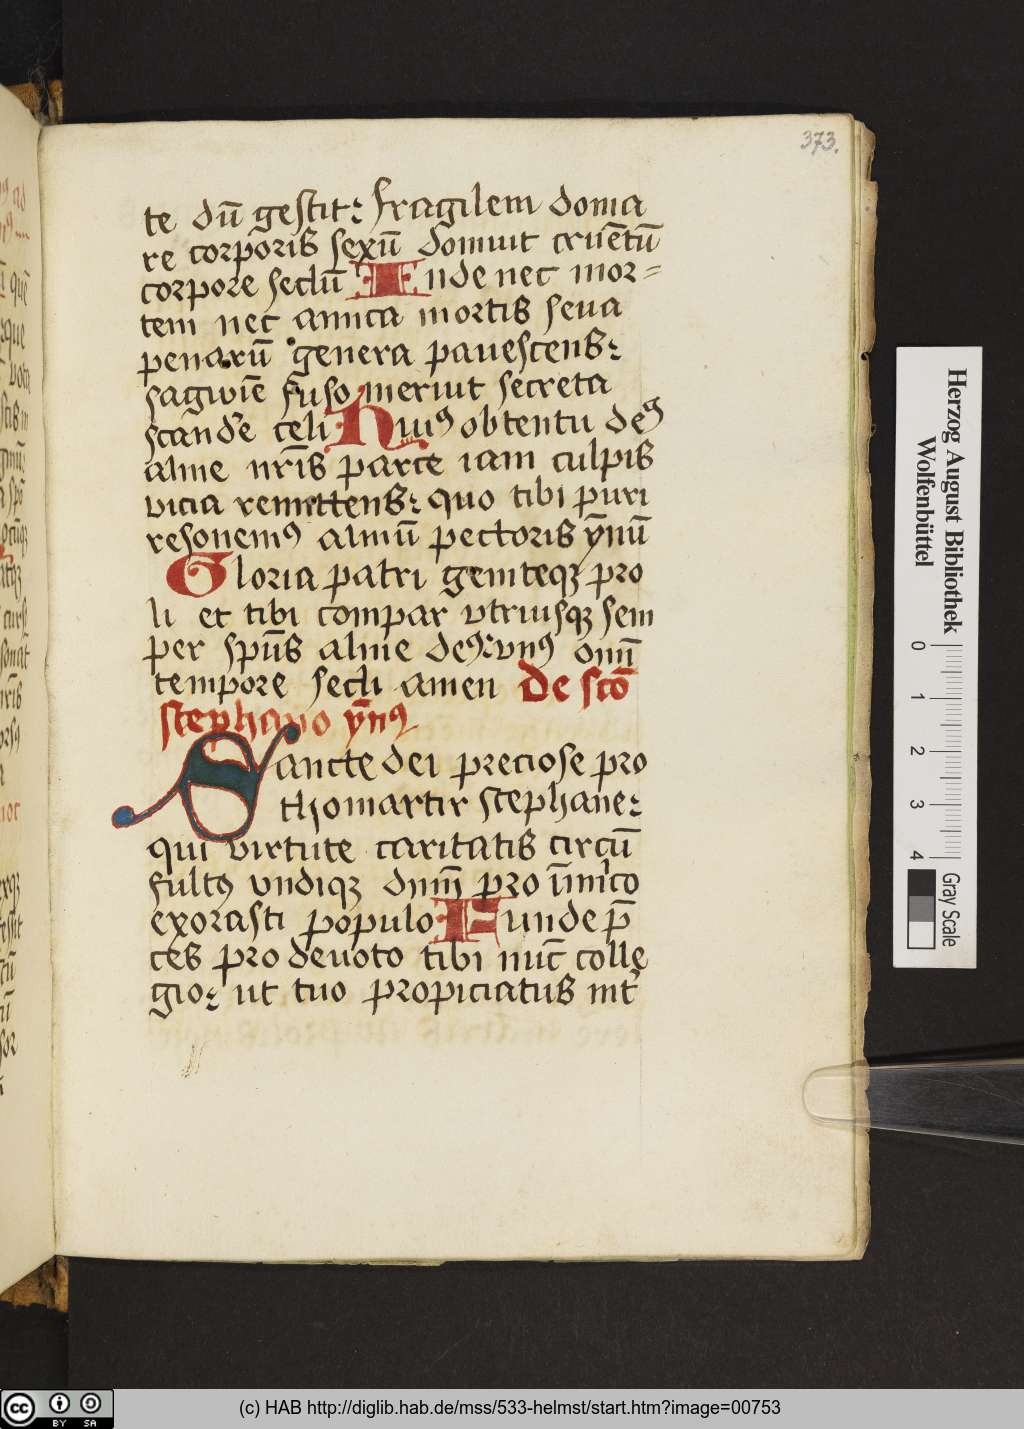 373.
te dū gestit: fragilem doma
re corporis sexū domuit cruētū
corpore seclū Inde nec mor=
tem nec amica mortis seua
penarū genera pauescens:
sagwiē fuso meruit secreta
scand'e celi Huiꝰ obtentu deꝰ
alme nr̄is parce iam culpis
vicia remittens: quo tibi puri
resonemꝰ almū pectoris ȳnū
Gloria patri geniteqꝫ pro
li et tibi compar vtriusqꝫ sem
per spūs alme deꝰ: vnꝰ om̄i
tempore secli amen De sc̄o
stephano ȳnꝰ
Sancte dei preciose pro
thomartir stephane:
qui virtute caritatis circū
fultꝰ vndiqꝫ dnm̄ pro īnīco
exorasti populo Funde p̄
ces pro deuoto tibi nūc colle
gio: ut tuo propiciatus int'
Herzog August Bibliothek
Wolfenbüttel
0 1 2 3 4
Gray Scale
cc BY SA
(c) HAB http://diglib.hab.de/mss/533-helmst/start.htm?image=00753